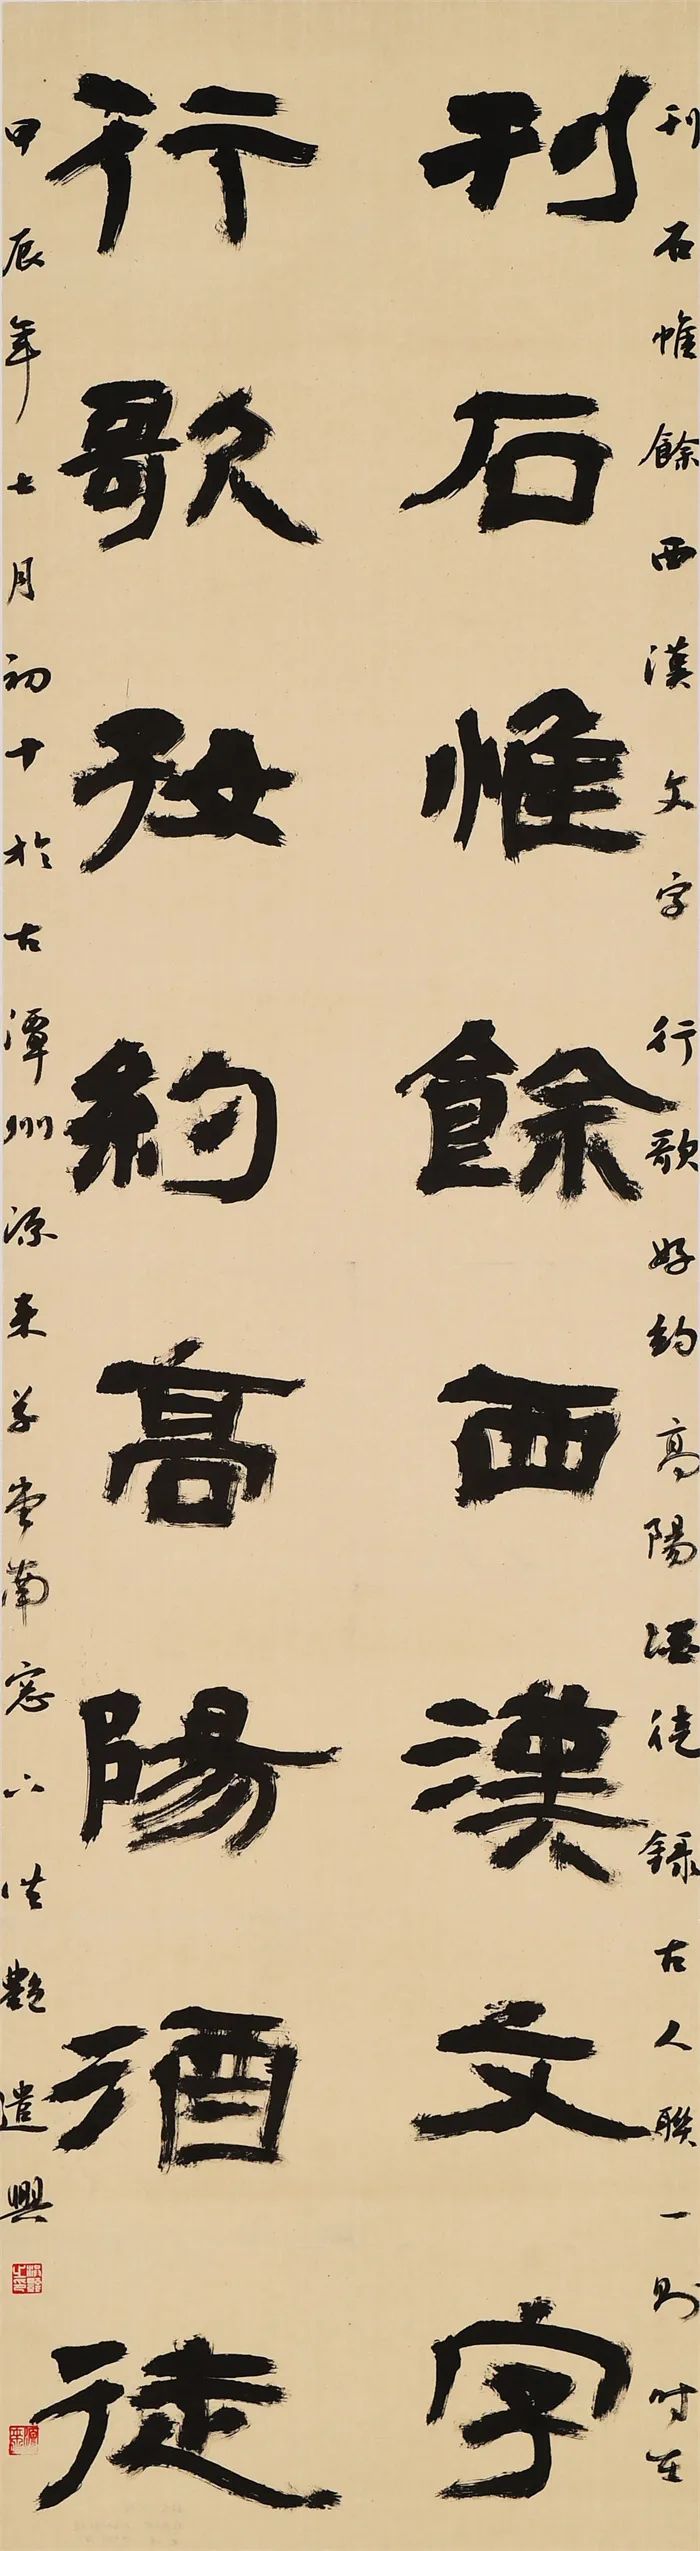 刊石惟餘西漢文字行歌好約高陽酒徒錄古人聯一則时在
刊石惟餘西漢文字
行歌好約高陽酒徒
甲辰年七月初十於古潭州源来草堂南窓下洪艷遣興